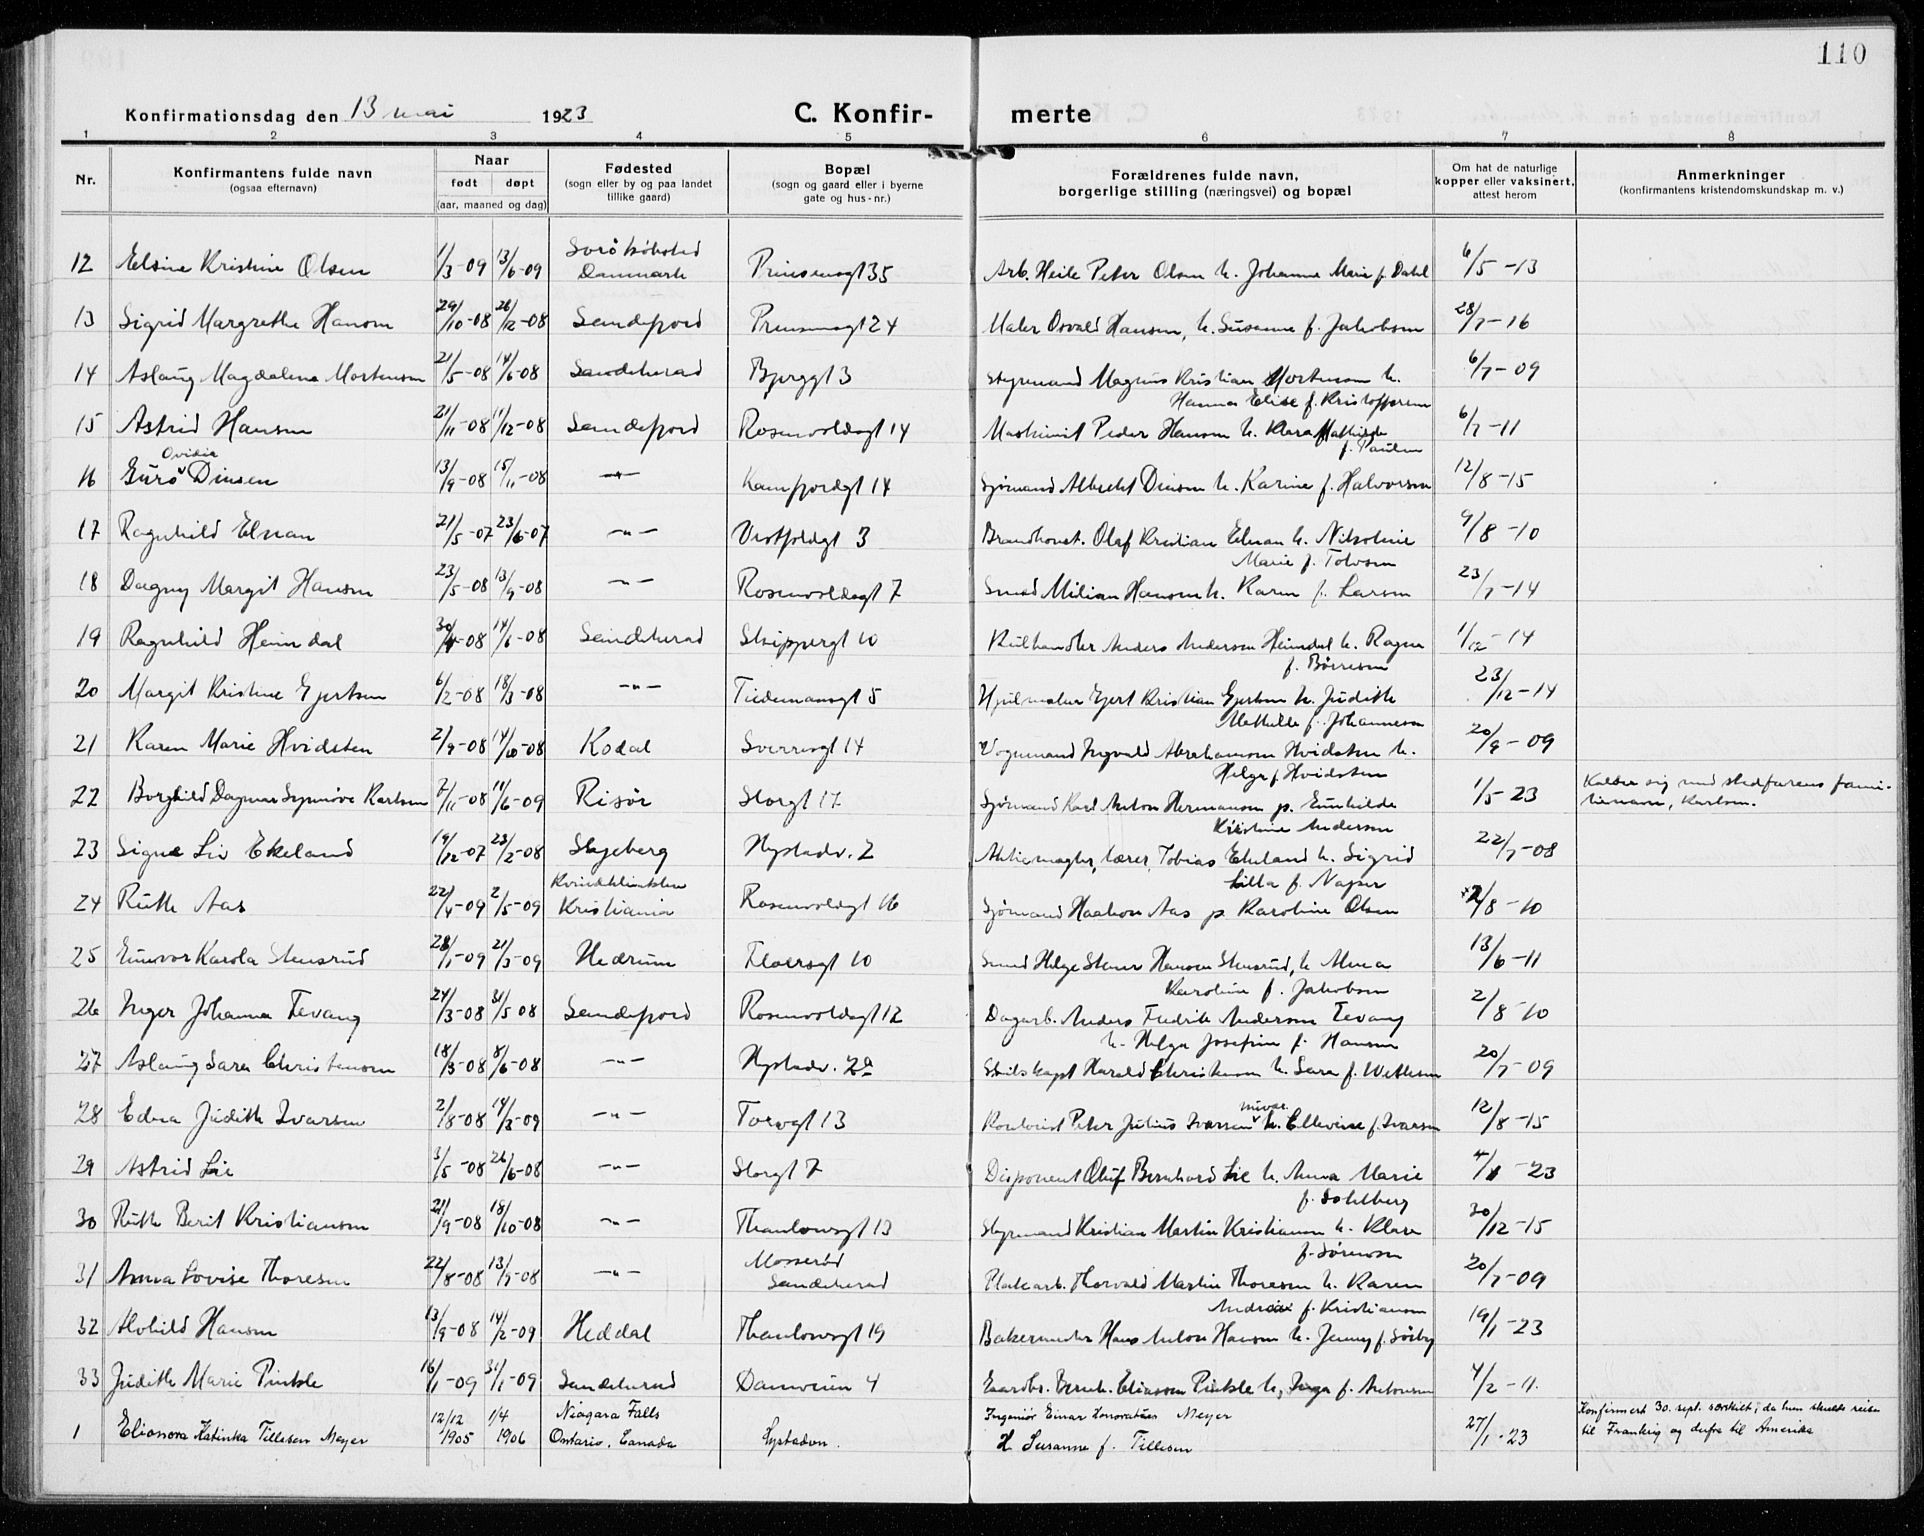 110
Konfirmationsdag den 13 mai 1923 C. Konfirmerte
1 2 3 4 5 6 7 8
Nr. Konfirmantens fulde navn (ogsaa efternavn) Naar født døpt (aar, maaned og dag) Fødested (sogn eller by og paa landet tillike gaard) Bopæl (sogn og gaard eller i byerne gate og hus-nr.) Forældrenes fulde navn, borgerlige stilling (næringsvei) og bopæl Om hat de naturlige kopper eller vaksinert, attest herom Anmerkninger (konfirmantens kristendomskundskap m. v.)
12 Elsine Kristine Olsen 1/3-09 13/6-09 Danmark Prinsensgt 35 Arb. Heile Peter Olsen h. Johanne Marie f. Dahl 6/5-13
13 Sigrid Margrethe Hansen 29/10-08 26/12-08 Sandefjord Prinsensgt 24 Maler Osvald Hansen, h. Susanne f. Jakobsen 28/7-16
14 Aslaug Magdalena Mortensen 21/5-08 14/6-08 Sandeherad Bjerggt 3 Styrmand Magnus Kristian Mortensen h.
Hanna Elise f. Kristoffersen 6/7-09
15 Astrid Hansen 21/11-08 11/12-08 Sandefjord Rosenvoldsgt 14 Maskinist Peder Hansen h. Klara Mathilde
f. Paulsen 6/7-11
16 Guro Ovidia Dinsen 13/9-08 15/11-08 -"- Kamfjordgt 14 Sjømand Albrecht Dinsen h. Karine f. Halvorsen 12/8-15
17 Ragnhild Elnan 21/5-07 23/6-07 -"- Vestfoldgt 3 Brandkonst. Olaf Kristian Elnan h. Nikoline
Marie f. Tolvsen 9/8-10
18 Dagny Margit Hansen 23/5-08 13/9-08 -"- Rosenvoldsgt 7 Smed Milian Hansen h. Karen f. Larsen 23/7-14
19 Ragnhild Heimdal 30/4-08 14/6-08 Sandeherad Skippergt 10 Kulhandler Anders Andersen Heimdal h. Ragna
f. Børresen 1/12-14
20 Margit Kristine Gjertsen 6/2-08 18/3-08 -"- Tidemansgt 5 Hjulmaker Gjert Kristian Gjertsen h. Judith
Mathilde f. Johannesen 23/12-14
21 Karen Marie Hvidsten 2/9-08 14/10-08 Kodal Sverresgt 14 Vognmand Ingvald Abrahamsen Hvidsten h.
Helga f. Hvidsten 20/9-09
22 Borghild Dagmar Synnøve Karlsen 7/11-08 11/6-09 Risør Storgt 17 Sjømand Karl Anton Hermansen p. Gunhilde
Kristine Andersen 1/5 23 Kalder sig med stedfarens familienavn, Karlsen.
23 Signe Liv Ekeland 19/12-07 23/2-08 Skjeberg Nystadv. 2 Aktiemægler, lærer, Tobias Ekeland h. Sigrid
Lilla f. Naper 22/7-08
24 Ruth Aas 22/4-09 2/5-09 Kvindeklinikken Kristiania Rosenvoldsgt 16 Sjømand Haakon Aas p. Karoline Olsen 2/8-10
25 Gunvor Karola Stensrud 28/1-09 21/3-09 Hedrum Floersgt 10 Smed Helge Stener Hansen Stensrud, h. Alma
Karoline f. Jakobsen 13/6-11
26 Inger Johanna Tevang 24/3-08 31/5 08 Sandefjord Rosenvoldsgt 12 Dagarb. Anders Fredrik Andersen Tevang
h. Helga Josefine f. Hansen 2/8-10
27 Aslaug Sara Christensen 18/3-08 8/6-08 -"- Nystadv. 2a Skibskapt Harald Christensen h. Sara f. Wettesen 20/7-09
28 Edna Judith Ivarsen 2/8-08 14/3-09 -"- Torvgt 13 Konduit Peter Julius Ivarsen h. Ellevine f. Ivarsen 12/8-15
29 Astrid Lie 3/5-08 26/6-08 -"- Storgt 7 Disponent Oluf Bernhard Lie h. Anna Marie
f. Sohlberg 4/1-23
30 Ruth Berit Kristiansen 21/9-08 18/10-08 -"- Thaulowsgt 13 Styrmand Kristian Martin Kristiansen h. Klara
f. Sørensen 30/12-15
31 Anna Lovise Thoresen 22/8-08 13/9-08 -"- Mosserød Sandeherad Platearb. Thorvald Martin Thoresen h. Karen
Andrea f. Kristiansen 20/7-09
32 Alvhild Hansen 13/9-08 14/2-09 Heddal Thaulowsgt 19 Bakermester Hans Anton Hansen h. Jenny f. Sørby 19/1-23
33 Judith Marie Pinksle 16/1-09 31/1-09 Sandeherad Damveien 4 Gaardbr. Bernh. Eliassen Pinksle h. Inga f. Antonsen 4/2-11.
1 Elionora Katinka Tillesen Meyer 12/12 1905 1/4 1906 Niagara Falls Ontario, Canada Nystadvn. Ingeniør Einar Honoratus Meyer
H. Susanne f. Tillesen 27/1-23 Konfirmert 30. sept. særskilt, da hun skulde reise
til Frankrig og derfra til Amerika